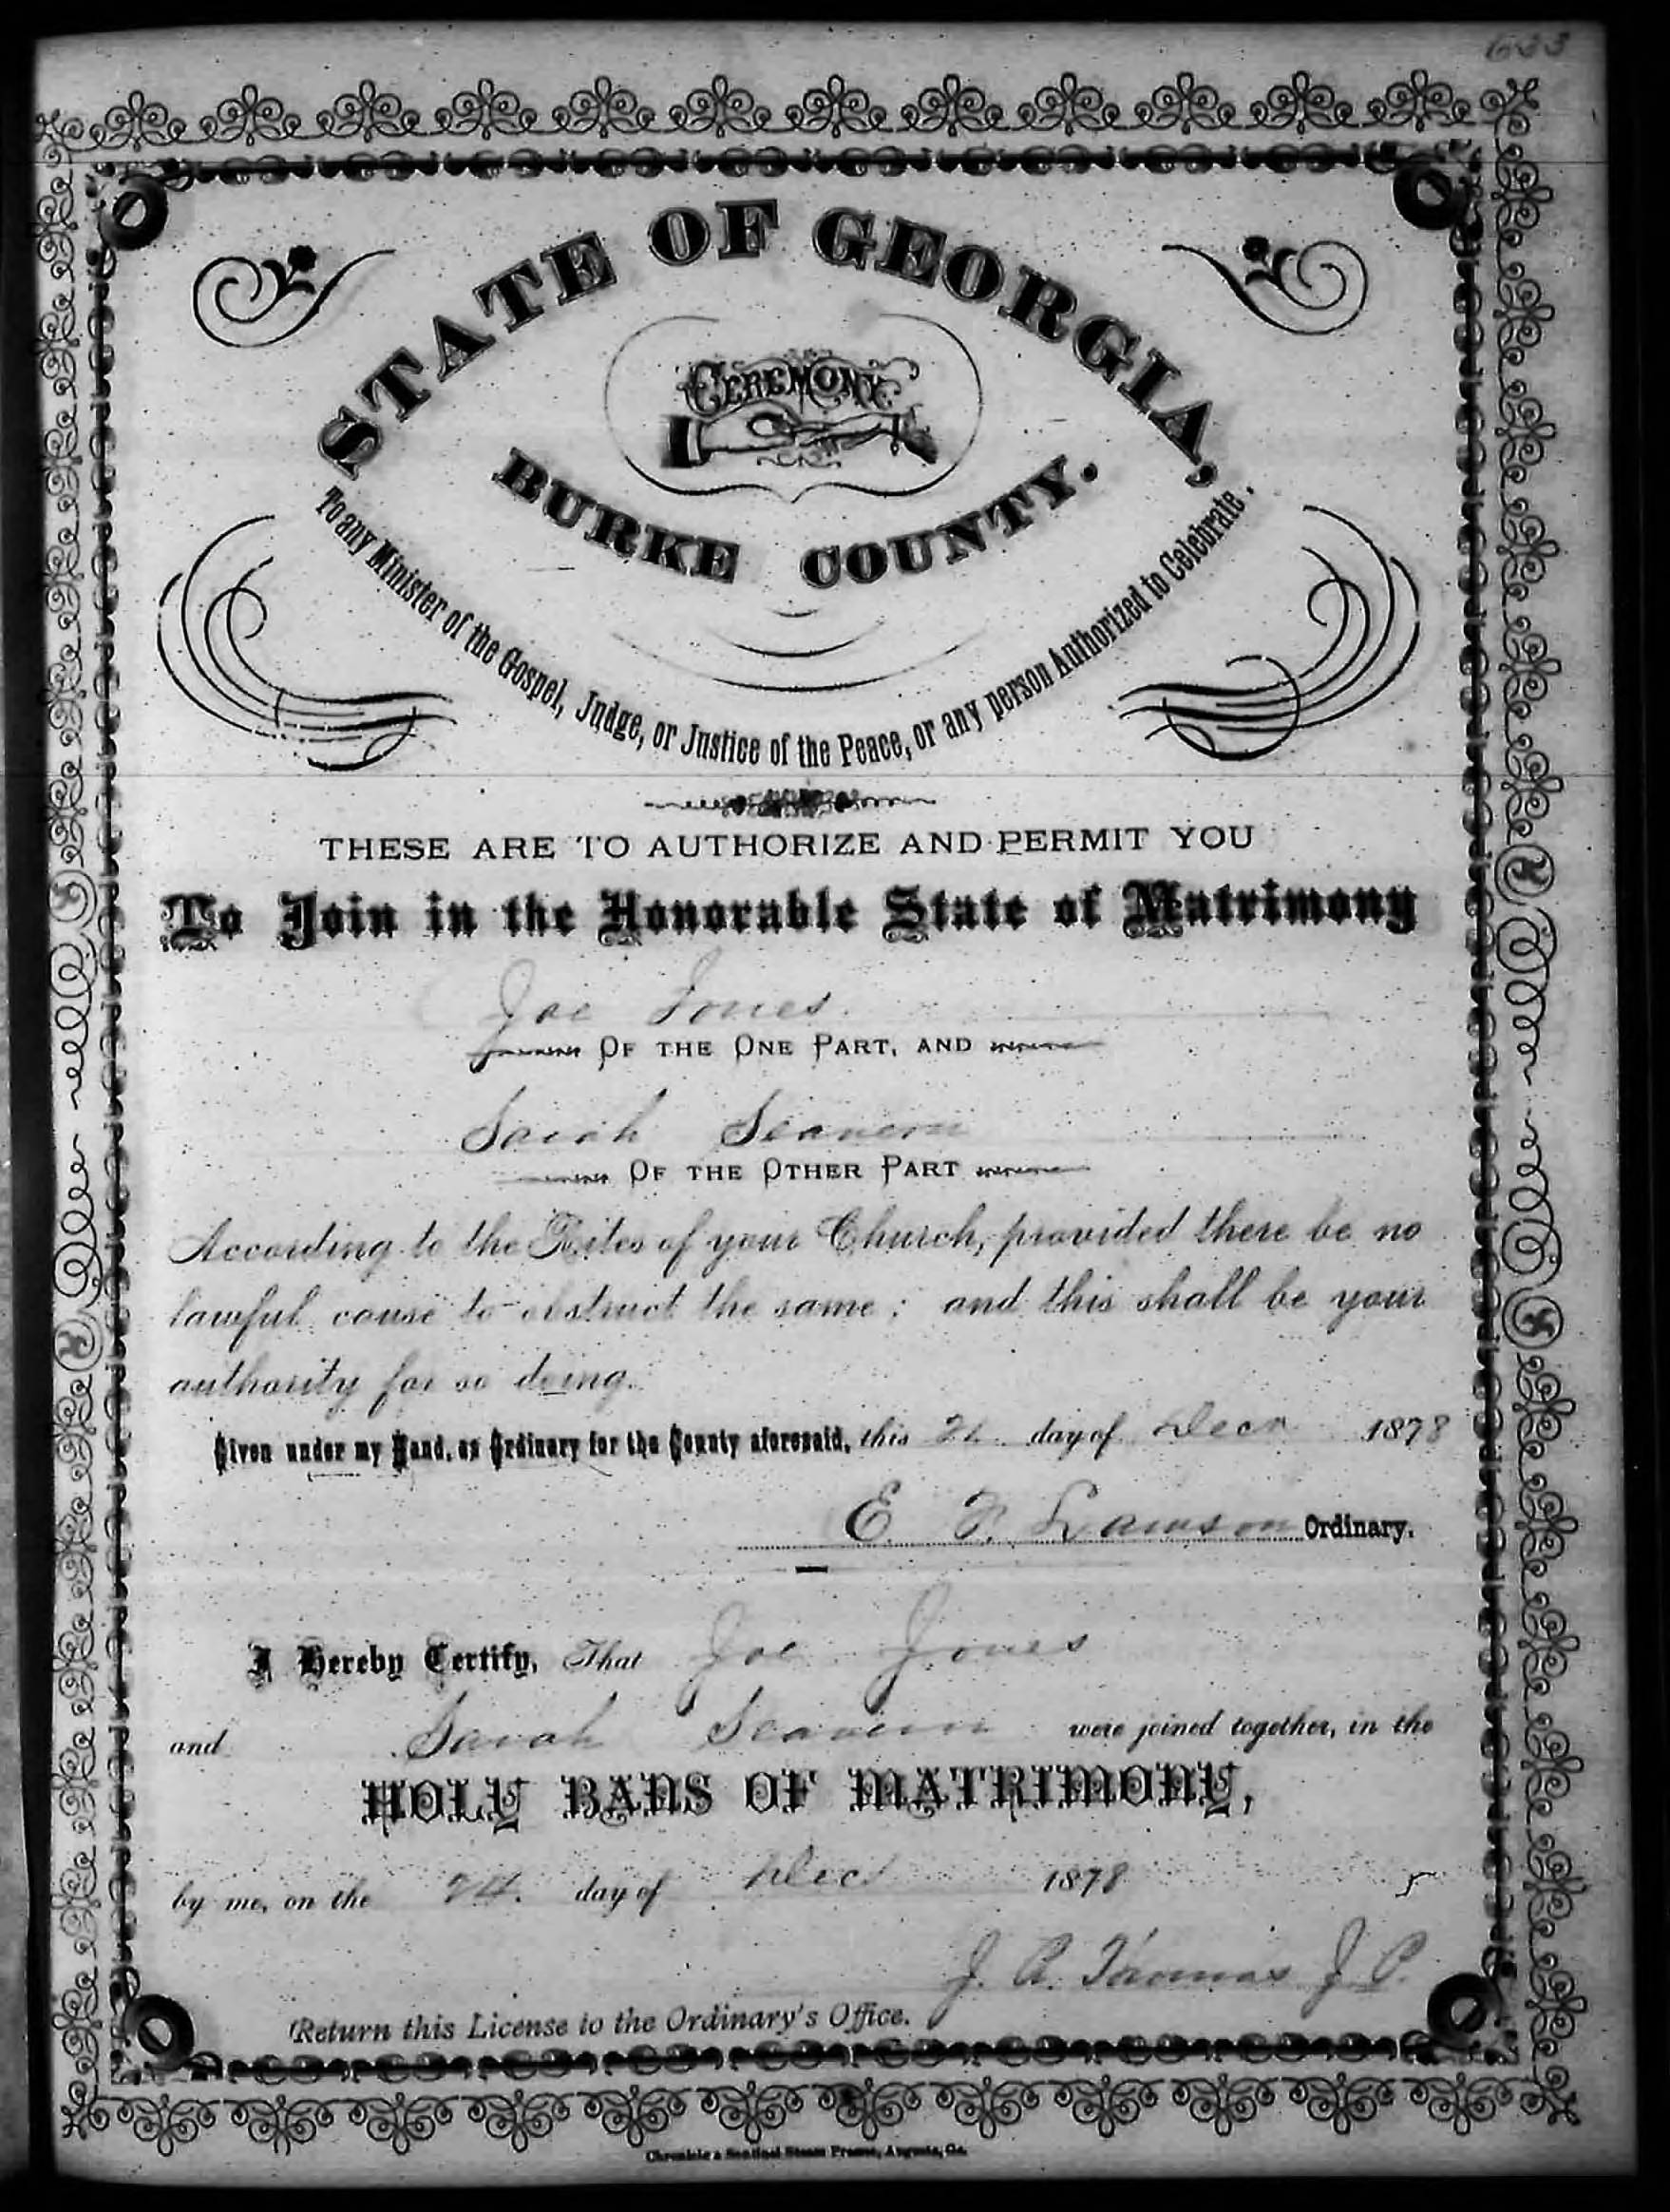 633
STATE OF GEORGIA,
CEREMONY
BURKE COUNTY.
To any Minister of the Gospel, Judge, or Justice of the Peace, or any person Authorized to Celebrate.
THESE ARE TO AUTHORIZE AND PERMIT YOU
To Join in the Honorable State of Matrimony
Joe Jones
OF THE ONE PART, AND
Sarah
OF THE OTHER PART
According to the Rites of your Church, provided there be no
lawful cause to obstruct the same; and this shall be your
authority for so doing.
Given under my Hand, as Ordinary for the County aforesaid, this day of Decr 1878
E. F. Lawson Ordinary.
I Hereby Certify, That Joe Jones
and Sarah were joined together, in the
HOLY BANS OF MATRIMONY,
by me, on the 24. day of Dec 1878
J. A. Thomas J. P.
Return this License to the Ordinary's Office.
Chronicle & Sentinel Steam Presses, Augusta, Ga.